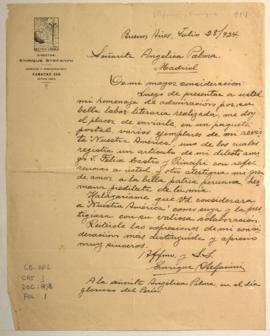 DIRECTOR
ENRIQUE STEFANINI
CARACAS 520
Buenos Aires, Julio 28/924.
Señorita Angélica Palma.
Madrid
De mi mayor consideración:
Luego de presentar a usted
mi homenaje de admiración por su
bella labor literaria realizada, me doy
el placer de enviarle, en un paquete
postal, varios ejemplares de mi revis
ta Nuestra América, uno de los cuales
registra un artículo de mi
go J. Félix Castro y con refe-
rencias a usted y otro atestigua mi gran
de amor a la bella patria peruana, her
mana predilecta de la mía.
Halagaríame que Vd. considerara
a Nuestra América como suya y la pres
tigiara con su valiosa colaboración.
Reitérole las expresiones de mi consi
deración más distinguida y aprecio
muy sincero.
Affmo. y S. S.
Enrique Stefanini
A la señorita Angélica Palma, en el día
glorioso del Perú.
CAJ: 1
FOL: 1